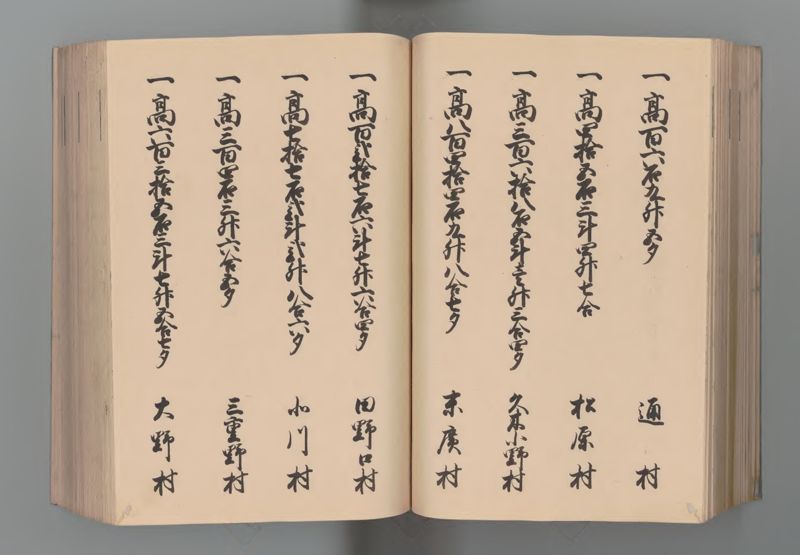 一高百六石九升五夕 通村
一高四拾五石三斗四升七合 松原村
一高三百六拾八石五斗壱升三合四夕 久木小野村
一高八百四拾四石九升八合七夕 末廣村
一高百弐拾七石六斗七升六合四夕 田野口村
一高七拾七石弐斗弐升八合六夕 小川村
一高三百四石三升六合五夕 三重野村
一高六百三拾五石三斗七升五合七夕 大野村